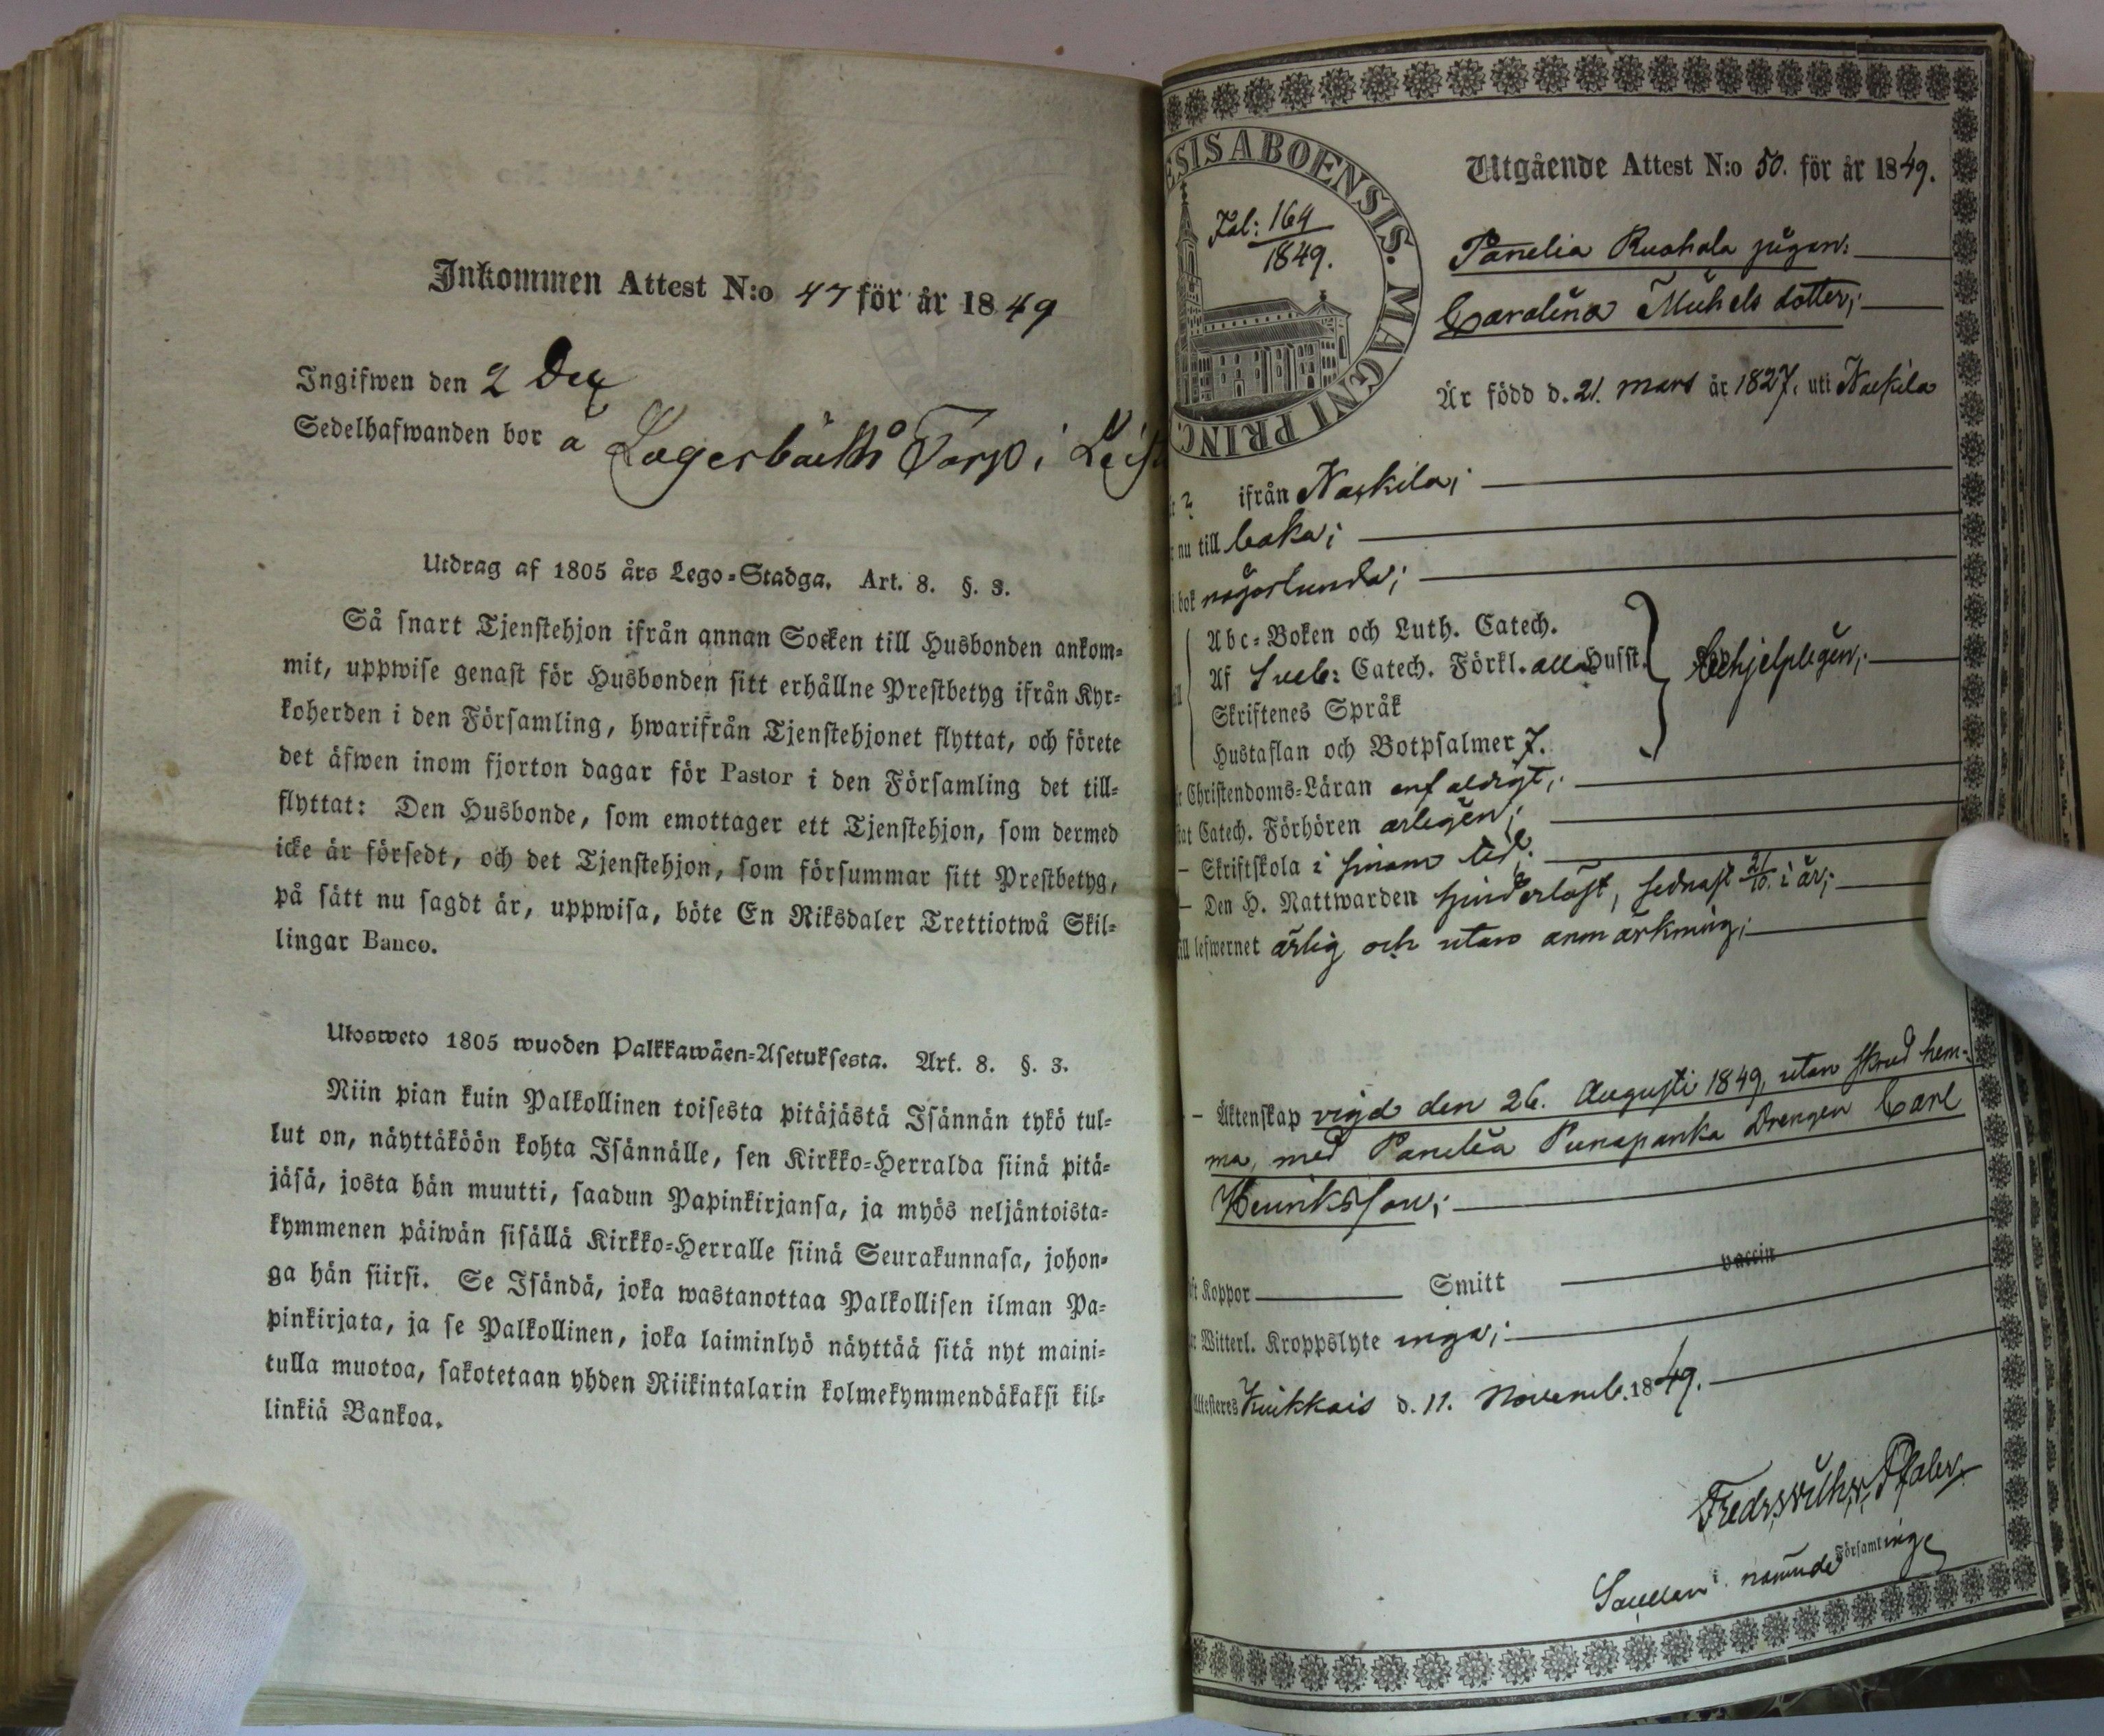 Inkommen Attest N:o 47 för år 1849
Ingifwen den 2 Dec
Sedelhafwanden bor å Lagerbäcks Torp i
Utdrag af 1805 års Lego-Stadga. Art. 8. §. 3.
Så snart Tjenstehjon ifrån annan Socken till Husbonden ankom-
mit, uppwise genast för Husbonden sitt erhållne Prestbetyg ifrån Kyr-
koherden i den Församling, hwarifrån Tjenstehjonet flyttat, och förete
det äfwen inom fjorton dagar för Pastor i den Församling det till-
flyttat: Den Husbonde, som emottager ett Tjenstehjon, som dermed
icke är försedt, och det Tjenstehjon, som försummar sitt Prestbetyg,
på sätt nu sagdt är, uppwisa, böte En Riksdaler Trettiotwå Skil-
lingar Banco.
Ulosweto 1805 wuoden Palkkawäen-Asetuksesta. Art. 8. §. 3.
Niin pian kuin Palkollinen toisesta pitäjästä Isännän tykö tul-
lut on, näyttäköön kohta Isännälle, sen Kirkko-Herralda siinä pitä-
jäsä, josta hän muutti, saadun Papinkirjansa, ja myös neljäntoista-
kymmenen päiwän sisällä Kirkko-Herralle siinä Seurakunnasa, johon-
ga hän siirsi. Se Isändä, joka wastanottaa Palkollisen ilman Pa-
pinkirjata, ja se Palkollinen, joka laiminlyö näyttää sitä nyt maini-
tulla muotoa, sakotetaan yhden Riikintalarin kolmekymmendäkaksi kil-
linkiä Bankoa.
ESIS ABOENSIS. MAGNI PRINC
Fol: 164
1849.
Utgående Attest N:o 50. för år 1849.
Panelia Ruohola pigan:
Carolina Michels dotter;
Är född d. 21. mars år 1827. uti Nackila
ifrån Nackila;
nu till baka;
i bok någorlunda;
Abc-Boken och Luth. Catech.
Af Sveb: Catech. Förkl. all Husst.
Skriftenes Språk
Hustaflan och Botpsalmer 7.
behjelpligen;
Christendoms-Läran enfaldigt;
Catech. Förhören årligen;
– Skriftskola i sinom tid;
– Den H. Nattwarden hinderlöst, sednast 21/10. i år;
lefwernet ärlig och utan anmärkning;
– Äktenskap vigd den 26. Augusti 1849, utan skrud hem-
ma, med Panelia Punapanka Drengen Carl
Henriksson;
Koppor Smitt vaccin
Witterl. Kroppslyte inga;
Attesteras Kiukkais d. 11. Novemb. 1849.
Fredr. Wilh. Pfaler
i nämnde Församling